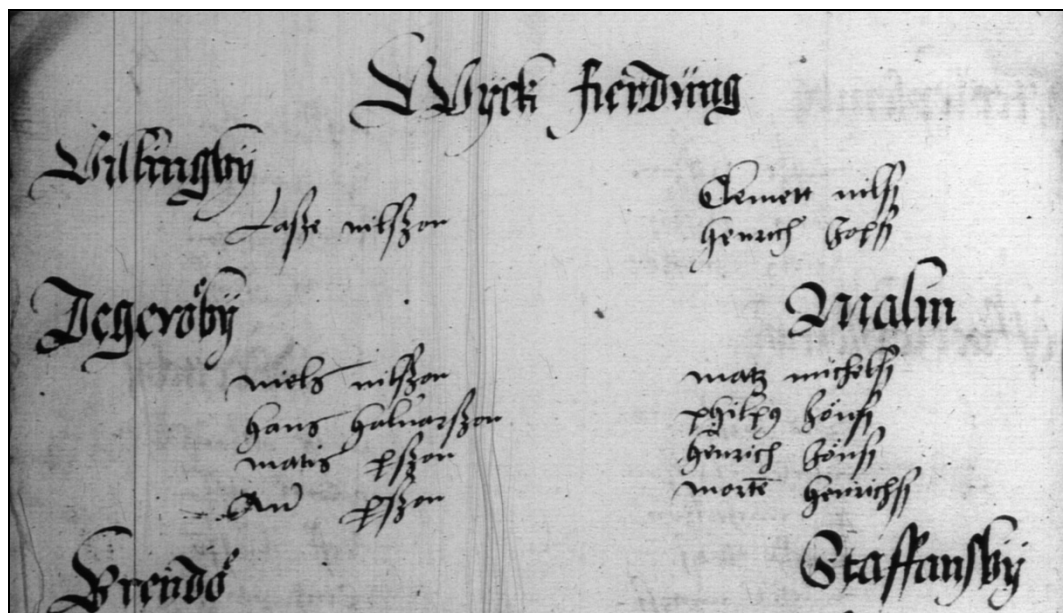 Wyck fierdüng
Villingby
Lasse nilsszon
Degeröby
niels nilsszon
hans haluarsszon
matis psszon
And psszon
Brendö
Clemett nilss
henrich
Malin
matz michelss
philpg Jönss
henrich Jönss
mortē henrichss
Staffansby